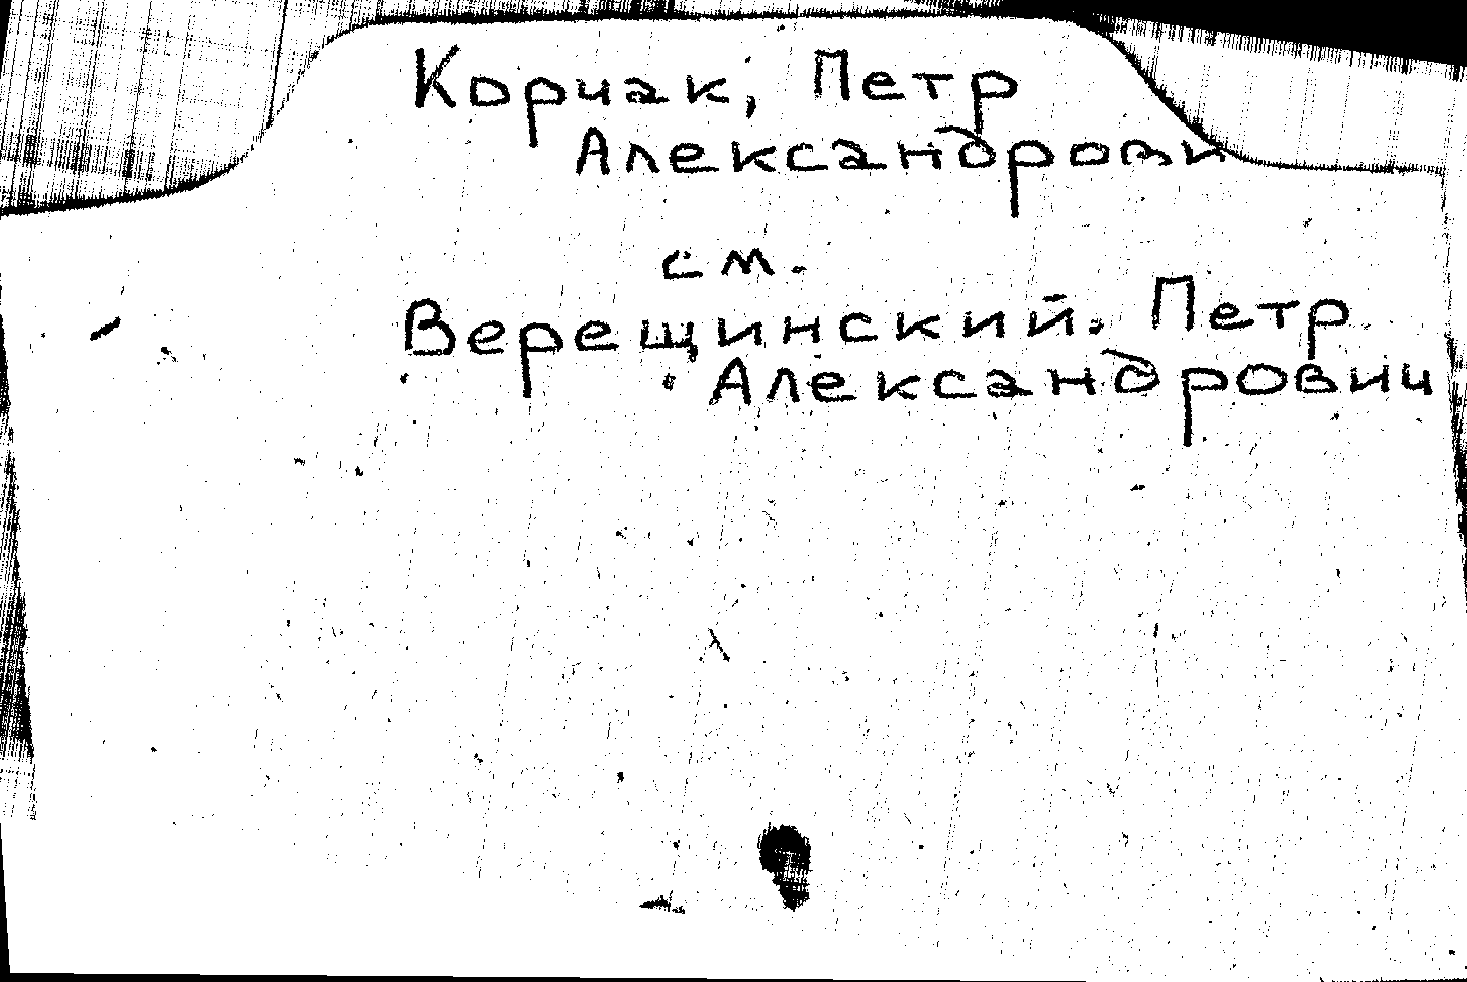 Корчак, Петр
Александрови
см.
Верещинский, Петр
Александрович